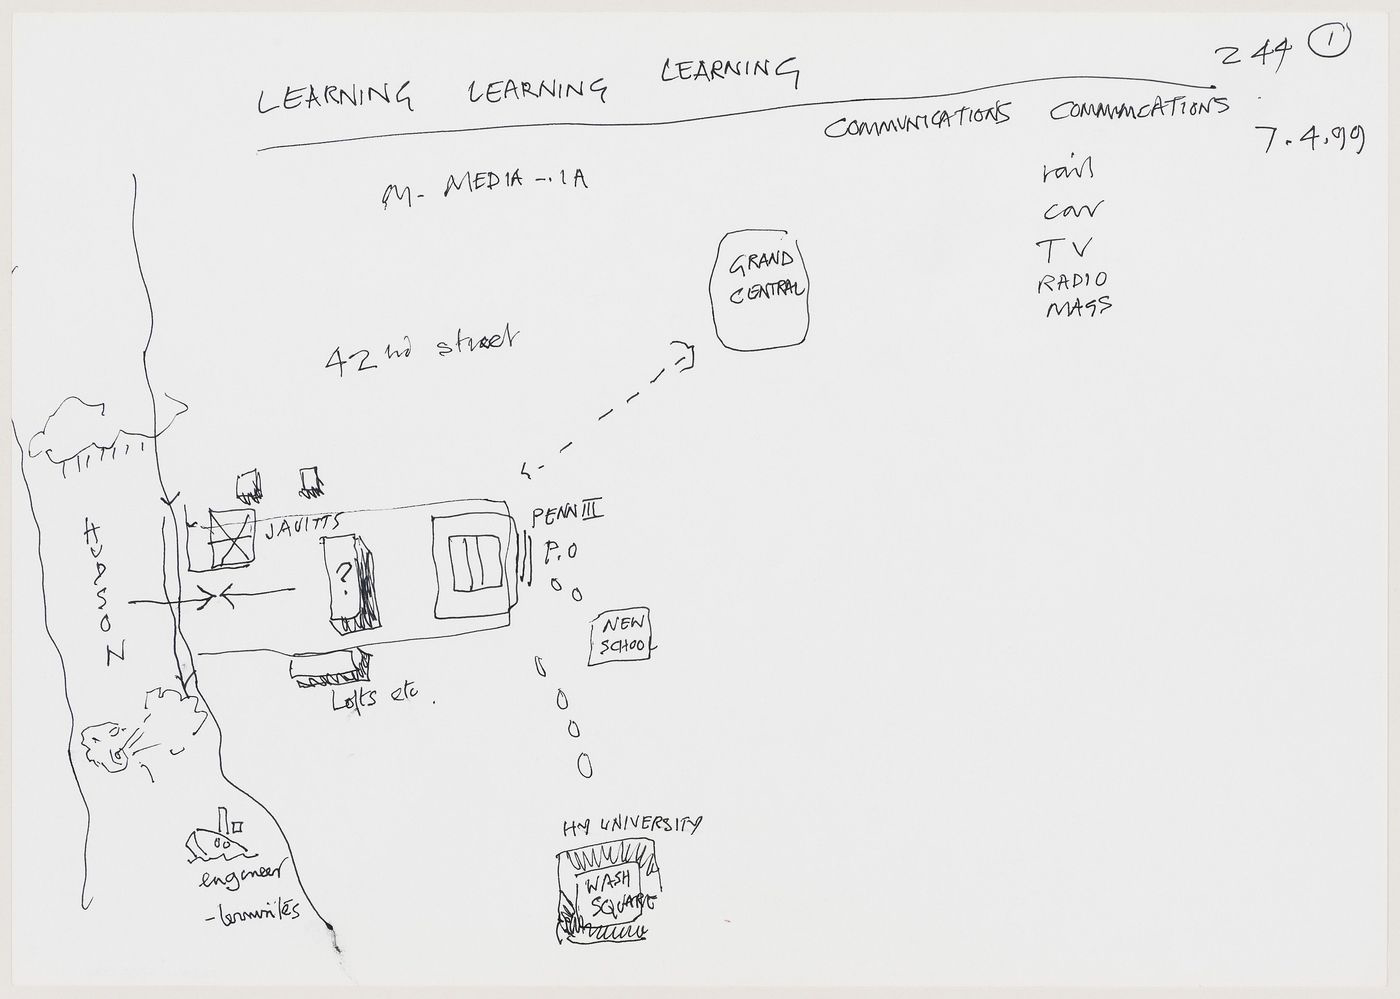 244 1
LEARNING LEARNING LEARNING
COMMUNICATIONS COMMUNICATIONS
7.4.99
M- MEDIA -.IA
rail
car
TV
RADIO
MAGS
GRAND
CENTRAL
42nd street
HUDSON
JAVITTS
PENN III
P.O
?
NEW
SCHOOL
Lofts etc.
NY UNIVERSITY
WASH
SQUARE
engineer